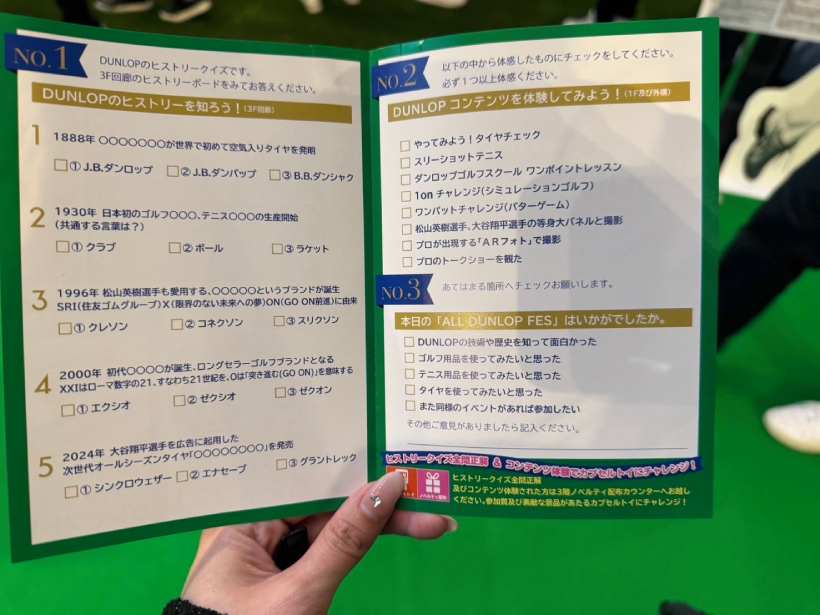 NO.1
DUNLOPのヒストリークイズです。
3F回廊のヒストリーボードをみてお答えください。
DUNLOPのヒストリーを知ろう!(3F回廊)
1 1888年 〇〇〇〇〇〇〇が世界で初めて空気入りタイヤを発明
①J.B.ダンロップ ②J.B.ダンパップ ③B.B.ダンシャク
2 1930年 日本初のゴルフ〇〇〇、テニス〇〇〇の生産開始
(共通する言葉は?)
①クラブ ②ボール ③ラケット
3 1996年 松山英樹選手も愛用する、〇〇〇〇〇というブランドが誕生
SRI(住友ゴムグループ)X(限界のない未来への夢)ON(GO ON前進)に由来
①クレソン ②コネクソン ③スリクソン
4 2000年 初代〇〇〇〇が誕生、ロングセラーゴルフブランドとなる
XXIはローマ数字の21、すなわち21世紀を、Oは「突き進む(GO ON)」を意味する
①エクシオ ②ゼクシオ ③ゼクオン
5 2024年 大谷翔平選手を広告に起用した
次世代オールシーズンタイヤ「〇〇〇〇〇〇〇〇」を発売
①シンクロウェザー ②エナセーブ ③グラントレック
NO.2
以下の中から体感したものにチェックをしてください。
必ず1つ以上体感ください。
DUNLOP コンテンツを体験してみよう!(1F及び外構)
やってみよう!タイヤチェック
スリーショットテニス
ダンロップゴルフスクール ワンポイントレッスン
1on チャレンジ(シミュレーションゴルフ)
ワンパットチャレンジ(パターゲーム)
松山英樹選手、大谷翔平選手の等身大パネルと撮影
プロが出現する「ARフォト」で撮影
プロのトークショーを観た
NO.3
あてはまる箇所へチェックお願いします。
本日の「ALL DUNLOP FES」はいかがでしたか。
DUNLOPの技術や歴史を知って面白かった
ゴルフ用品を使ってみたいと思った
テニス用品を使ってみたいと思った
タイヤを使ってみたいと思った
また同様のイベントがあれば参加したい
その他ご意見がありましたら記入ください。
ヒストリークイズ全問正解 & コンテンツ体験でカプセルトイにチャレンジ!
ノベルティ配布
ヒストリークイズ全問正解
及びコンテンツ体験された方は3階ノベルティ配布カウンターへお越し
ください。参加賞及び素敵な景品があたるカプセルトイにチャレンジ!